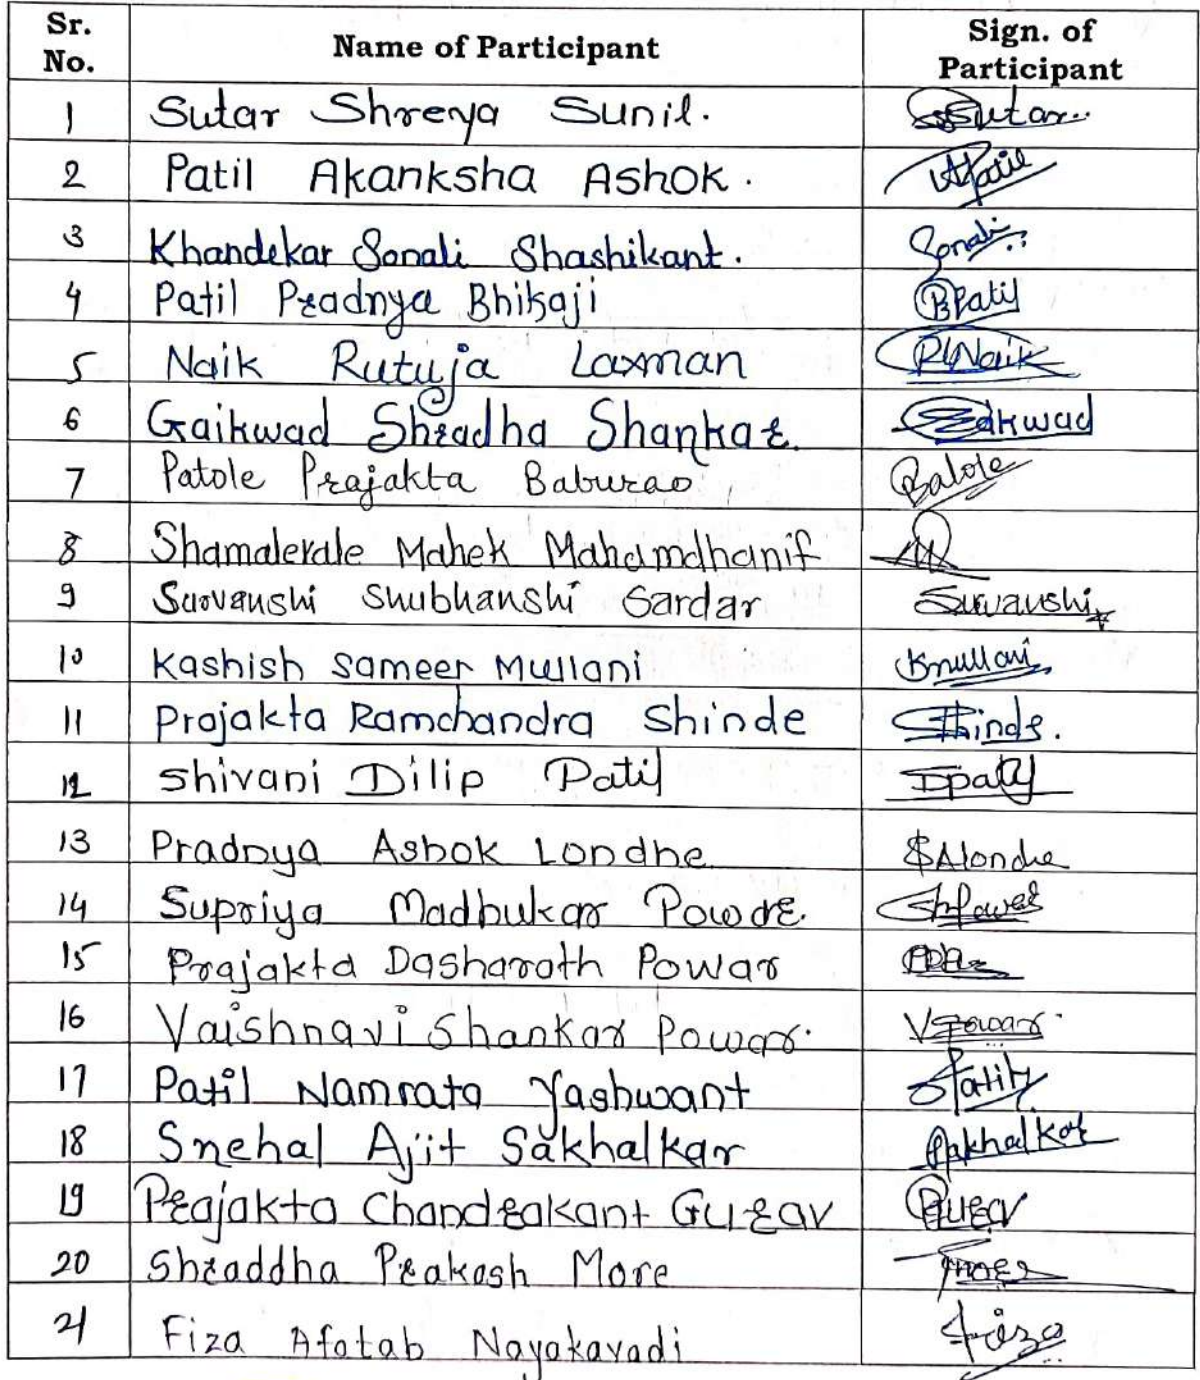 Sr. No. Name of Participant Sign. of Participant
1 Sutar Shreya Sunil. Sutar..
2 Patil Akanksha Ashok. APatil
3 Khandekar Sonali Shashikant. Sonali
4 Patil Pradnya Bhikaji BPatil
5 Naik Rutuja Laxman RLNaik
6 Gaikwad Shradha Shankar. Gaikwad
7 Patole Prajakta Baburao
8 Shamalevale Mahek Mahamdhanif
9 Survanshi Shubhanshi Sardar Survanshi
10 Kashish Sameer Mullani Kmullani
11 Prajakta Ramchandra Shinde Shinde.
12 Shivani Dilip Patil Dpatil
13 Pradnya Ashok Londhe
14 Supriya Madhukar Powar.
15 Prajakta Dasharath Powar
16 Vaishnavi Shankar Powar. VPowar.
17 Patil Namrata Yashwant
18 Snehal Ajit Sakhalkar Sakhalkar
19 Prajakta Chandrakant Gurav Gurav
20 Shraddha Prakash More
21 Fiza Afatab Nayakavadi Fiza